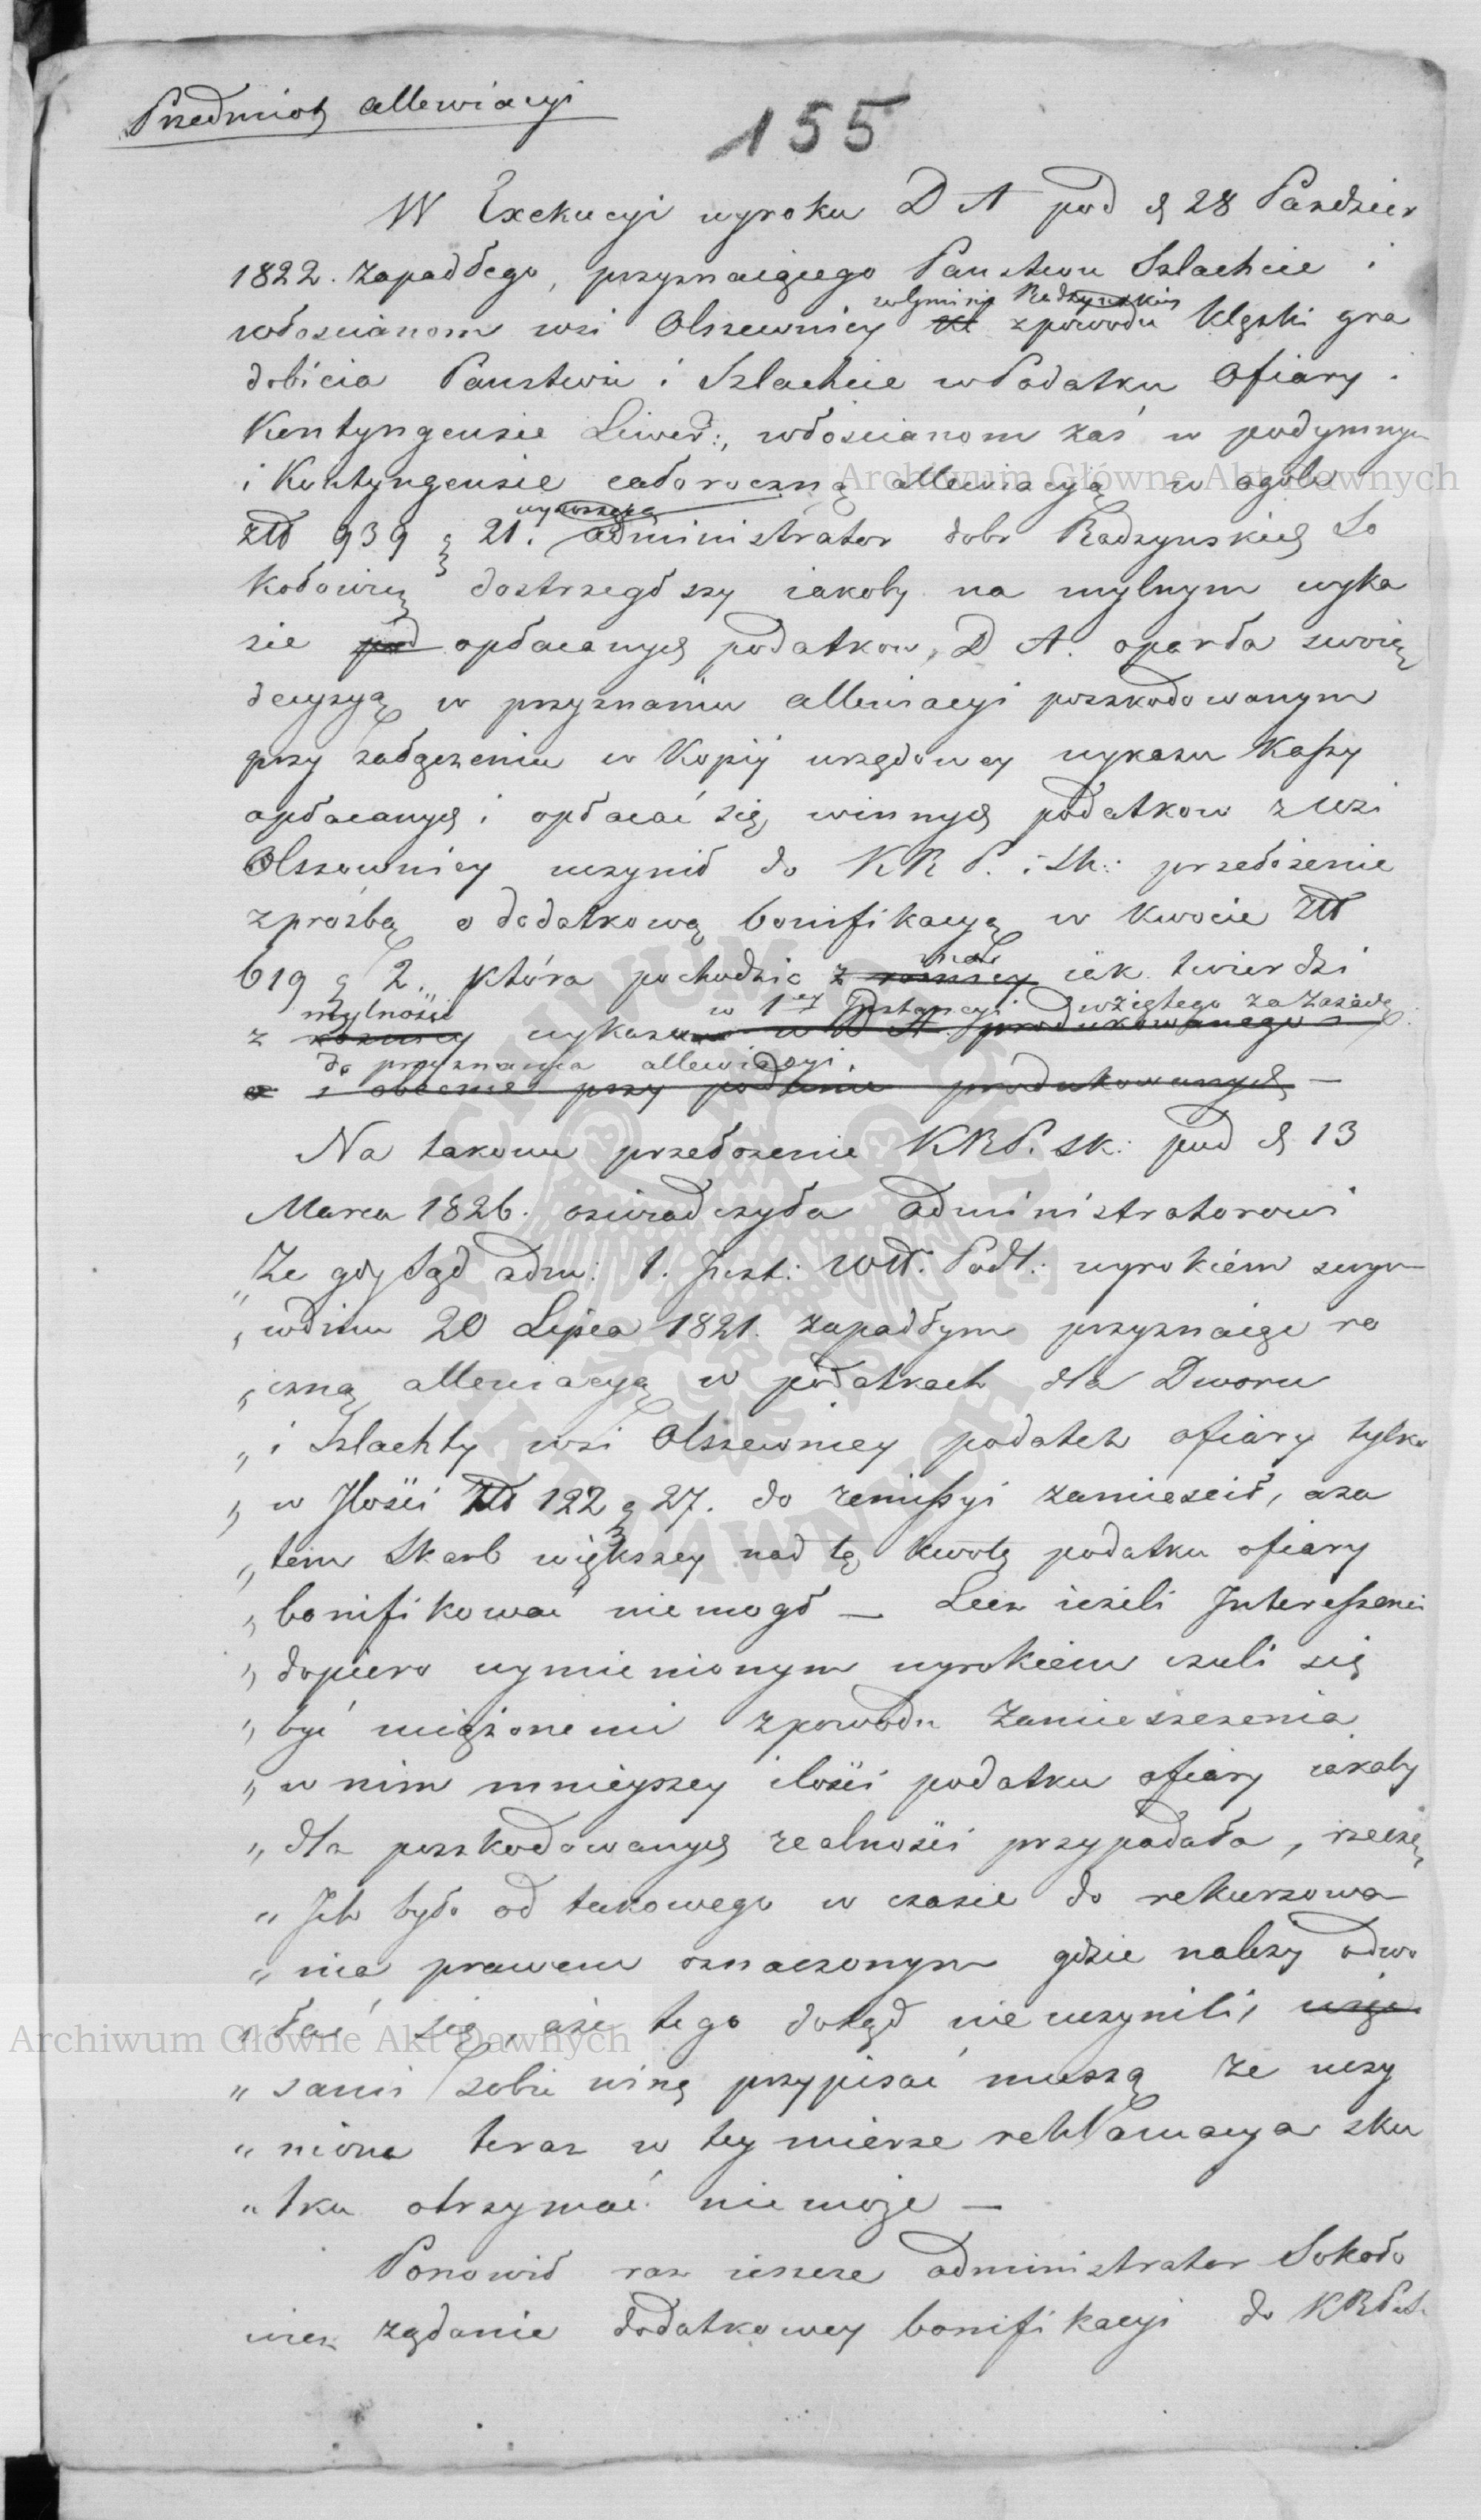 Przedmiot allewiacyi
155
W Exekucyi wyroku D A pod d 28 Pazdzier
1822. zapadłego, przyznaiącego Panstwu Szlachcie i
w Gminie Radzynskiey
włoscianom wsi Olszewnicy zpowodu klęski gra
dobicia Panstwu i Szlachcie w Podatku Ofiary i
Kontyngensie Liwer:, włoscianom zaś w podymnym
i Kontyngensie całoroczną allewiacyą w ogóle
wynoszącą
złł 939 g 21. administrator dobr Radzynskich So
kołowicz dostrzegłszy iakoby na mylnym wyka
zie pod opłacanych podatkow, D A. oparła swoią
decyzyą w przyznaniu allewiacyi poszkodowanym
przy załączeniu w Kopij urzędowey wykazu Kassy
opłacanych i opłacać się winnych podatkow z wsi
Olszewnicy uczynił do KR P. i Sk: przełożenie
zprośbą o dodatkową bonifikacyą w kwocie złł
619 g 2. która pochodzic miała iak twierdzi
z rożnicy
mylności w 1ey Instancyi wziętego za zasadę
z rożnicy wykazu w D A produkowanego
do przyznania allewiacyi.
i obecnie przy podaniu produkowanych —
Na takowe przełożenie KRP. Sk: pod d. 13
Marca 1826. oswiadczyła administratorowi
„Ze gdy Sąd adm: 1. Inst: Wtt. Podl: wyrokiem swym
„wdniu 20 Lipca 1821. zapadłym przyznaiąc ro
„czną allewiacyą w podatkach dla Dworu
„i Szlachty wsi Olszewnicy podatek ofiary tylko
„w Ilości Złł 122 g 27. do remissyi zamiescił, a za
„tem Skarb większey nad tę kwotę podatku ofiary
„bonifikować niemogł — Lecz ieżeli Interessenci
„dopiero wymienionym wyrokiem czuli się
„być uciążonemi zpowodu zamieszczenia
„w nim mnieyszey ilości podatku ofiary iakaby
„dla poszkodowanych realności przypadała, rzeczą
„Ich było od takowego w czasie do rekursowa
„nia prawem oznaczonym gdzie należy odwo
„łać się, a że tego dotąd nie uczynili,
„sami sobie winę przypisać muszą że uczy
„niona teraz w tey mierze reklamacya sku
„tku otrzymać niemoże —
Ponowił raz ieszcze administrator Sokoło
wicz rządanie dodatkowey bonifikacyi do KRPiSk
Archiwum Główne Akt Dawnych
Archiwum Główne Akt Dawnych
ARCHIWUM GŁÓWNE AKT DAWNYCH